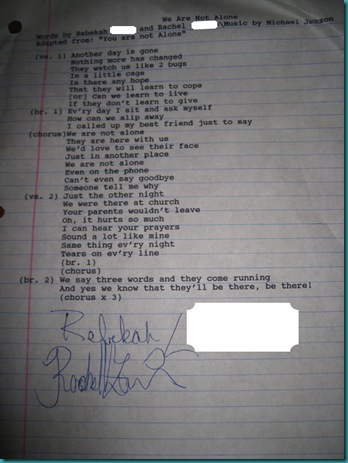 We Are Not Alone
Words by Rebekah and Rachel \Music by Michael Jackson
Adapted from: "You are not Alone"
(vs. 1) Another day is gone
Nothing more has changed
They watch us like 2 bugs
In a little cage
Is there any hope
That they will learn to cope
[or] Can we learn to live
if they don't learn to give
(br. 1) Ev'ry day I sit and ask myself
How can we slip away
I called up my best friend just to say
(chorus)We are not alone
They are here with us
We'd love to see their face
Just in another place
We are not alone
Even on the phone
Can't even say goodbye
Someone tell me why
(vs. 2) Just the other night
We were there at church
Your parents wouldn't leave
Oh, it hurts so much
I can hear your prayers
Sound a lot like mine
Same thing ev'ry night
Tears on ev'ry line
(br. 1)
(chorus)
(br. 2) We say three words and they come running
And yes we know that they'll be there, be there!
(chorus x 3)
Rebekah